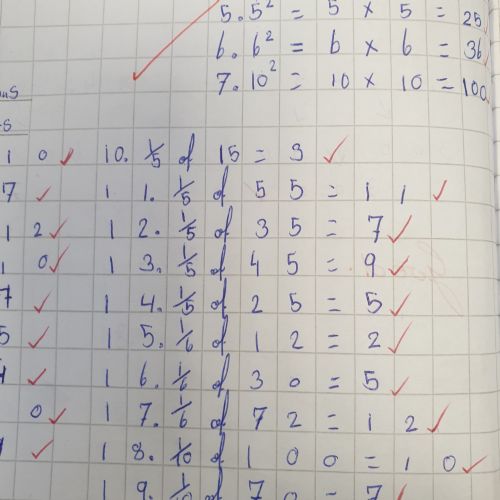 5. 5² = 5 × 5 = 25
6. 6² = 6 × 6 = 36
7. 10² = 10 × 10 = 100
10 10. 1/5 of 15 = 3
7 11. 1/5 of 55 = 11
12 12. 1/5 of 35 = 7
10 13. 1/5 of 45 = 9
7 14. 1/5 of 25 = 5
5 15. 1/6 of 12 = 2
16. 1/6 of 30 = 5
0 17. 1/6 of 72 = 12
18. 1/10 of 100 = 10
19. 1/10 of 70 = 7